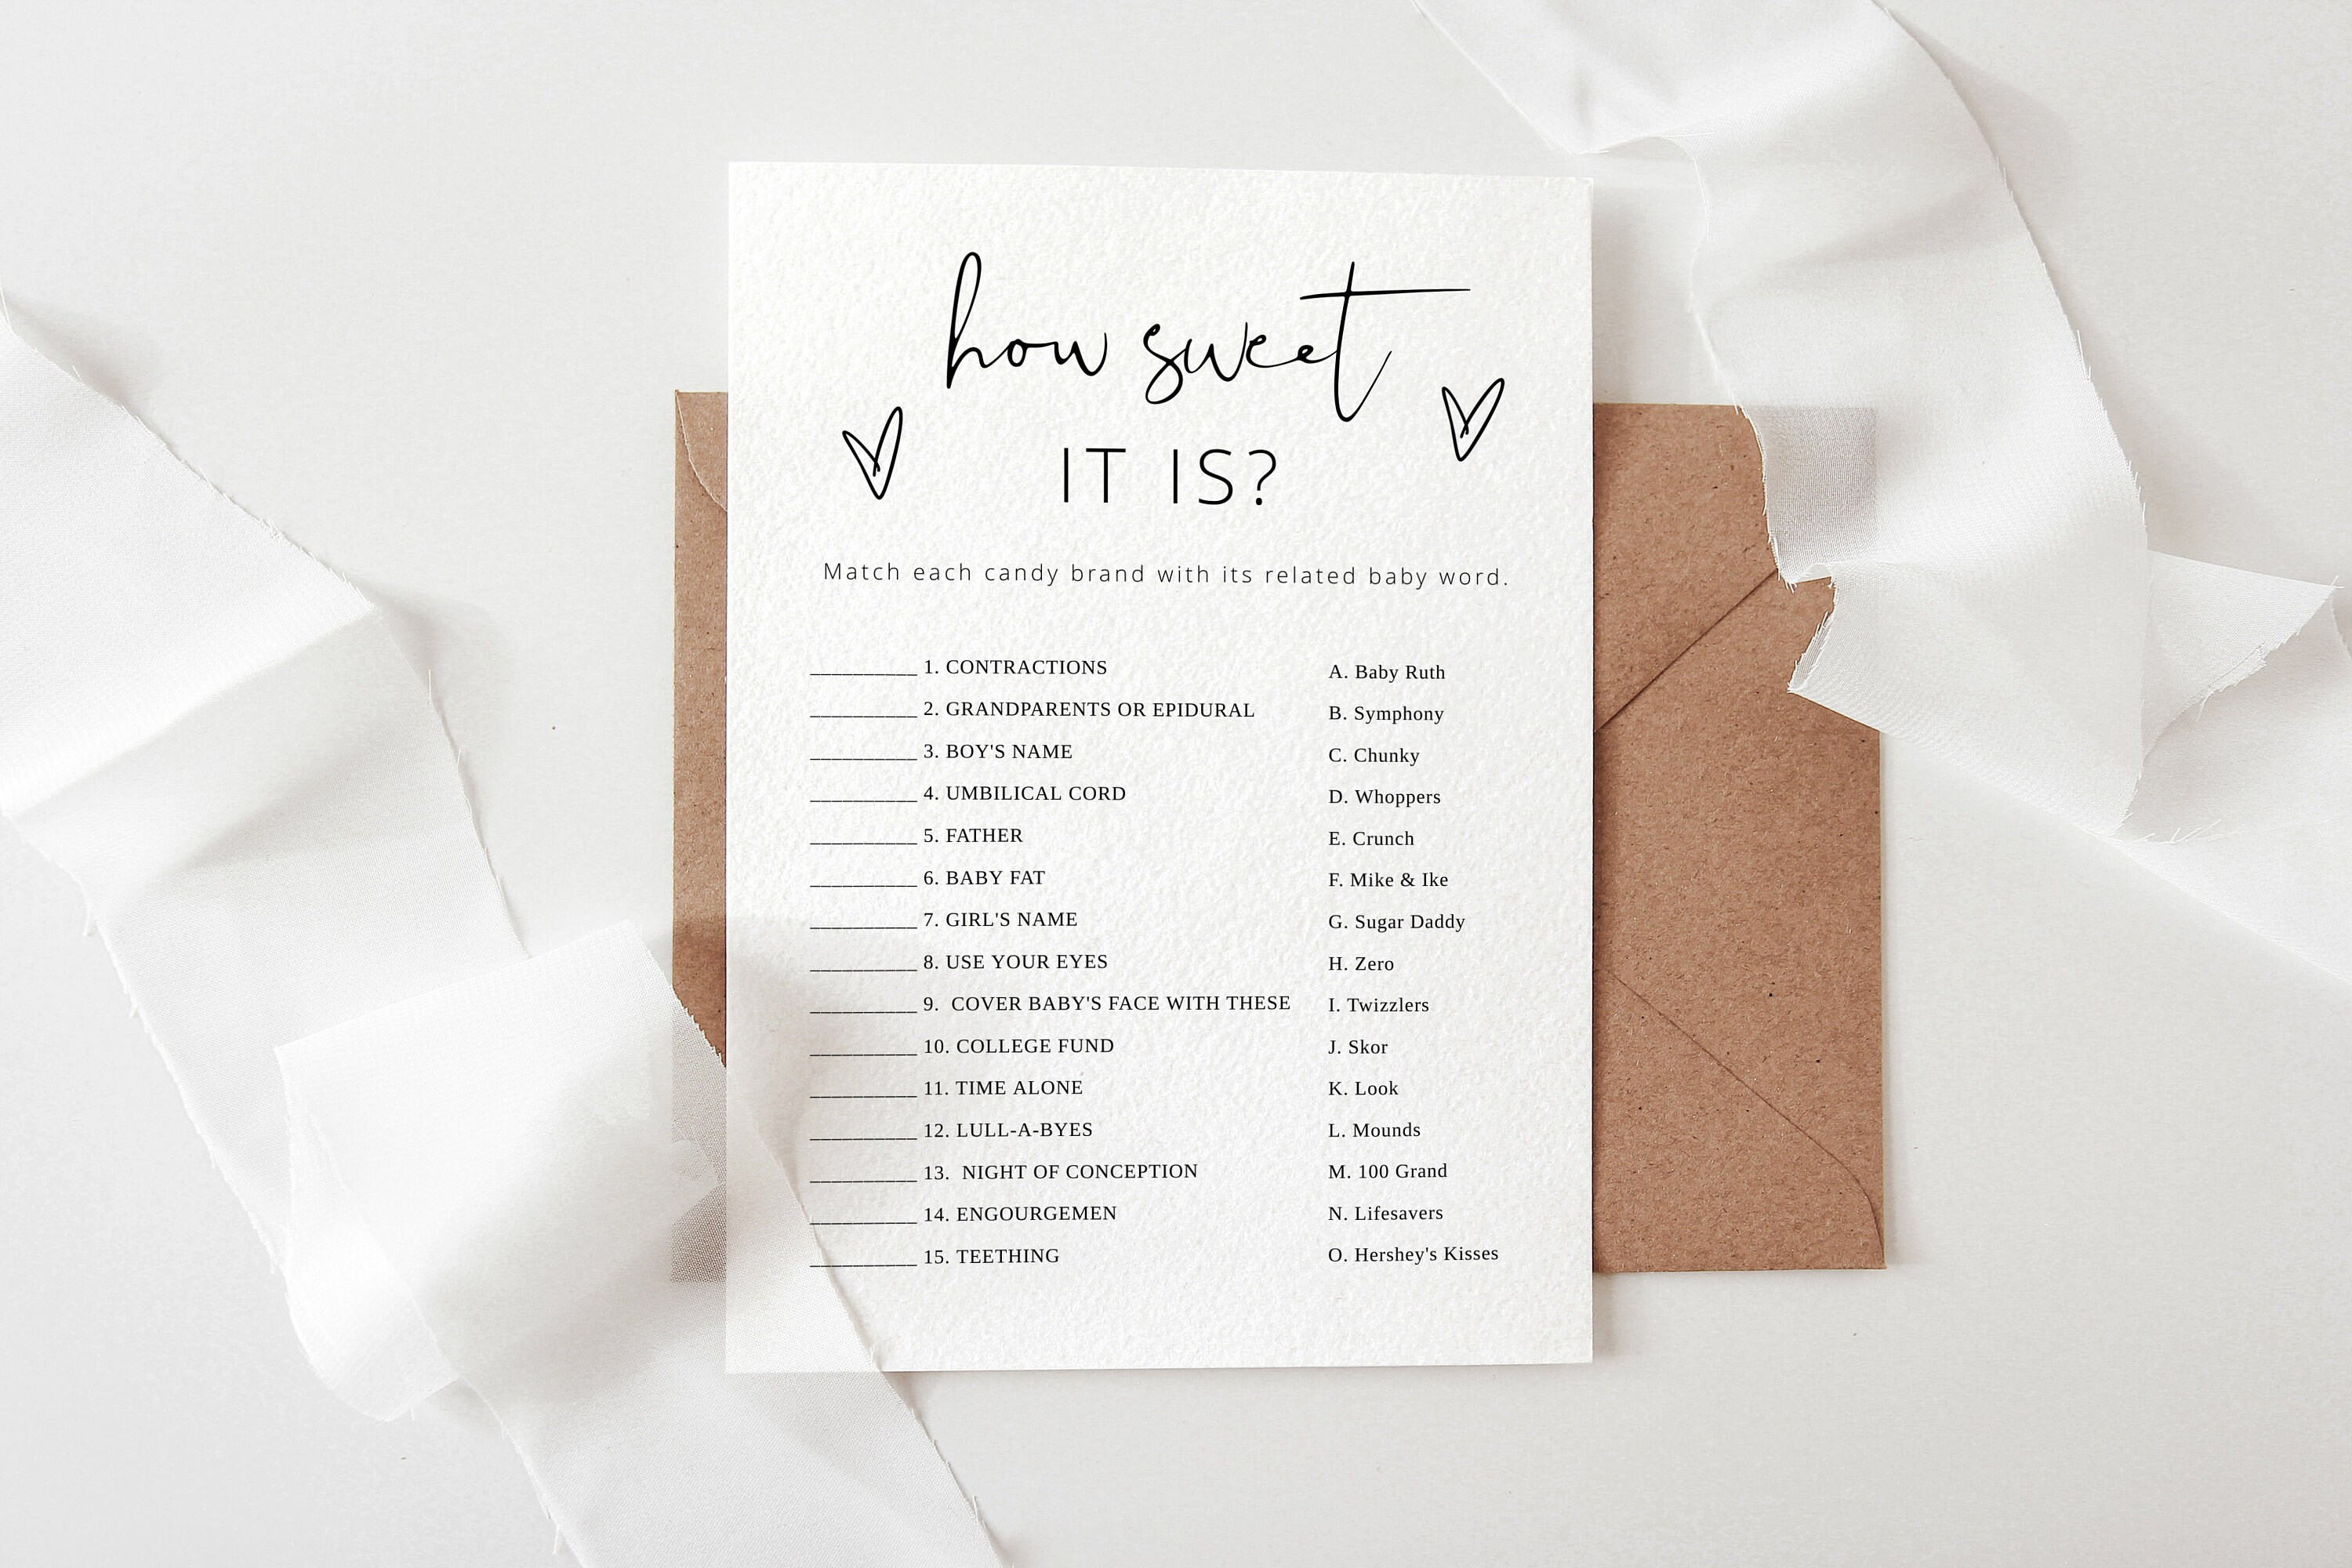 how sweet
IT IS?
Match each candy brand with its related baby word.
__________ 1. CONTRACTIONS
__________ 2. GRANDPARENTS OR EPIDURAL
__________ 3. BOY'S NAME
__________ 4. UMBILICAL CORD
__________ 5. FATHER
__________ 6. BABY FAT
__________ 7. GIRL'S NAME
__________ 8. USE YOUR EYES
__________ 9. COVER BABY'S FACE WITH THESE
__________ 10. COLLEGE FUND
__________ 11. TIME ALONE
__________ 12. LULL-A-BYES
__________ 13. NIGHT OF CONCEPTION
__________ 14. ENGOURGEMEN
__________ 15. TEETHING
A. Baby Ruth
B. Symphony
C. Chunky
D. Whoppers
E. Crunch
F. Mike & Ike
G. Sugar Daddy
H. Zero
I. Twizzlers
J. Skor
K. Look
L. Mounds
M. 100 Grand
N. Lifesavers
O. Hershey's Kisses